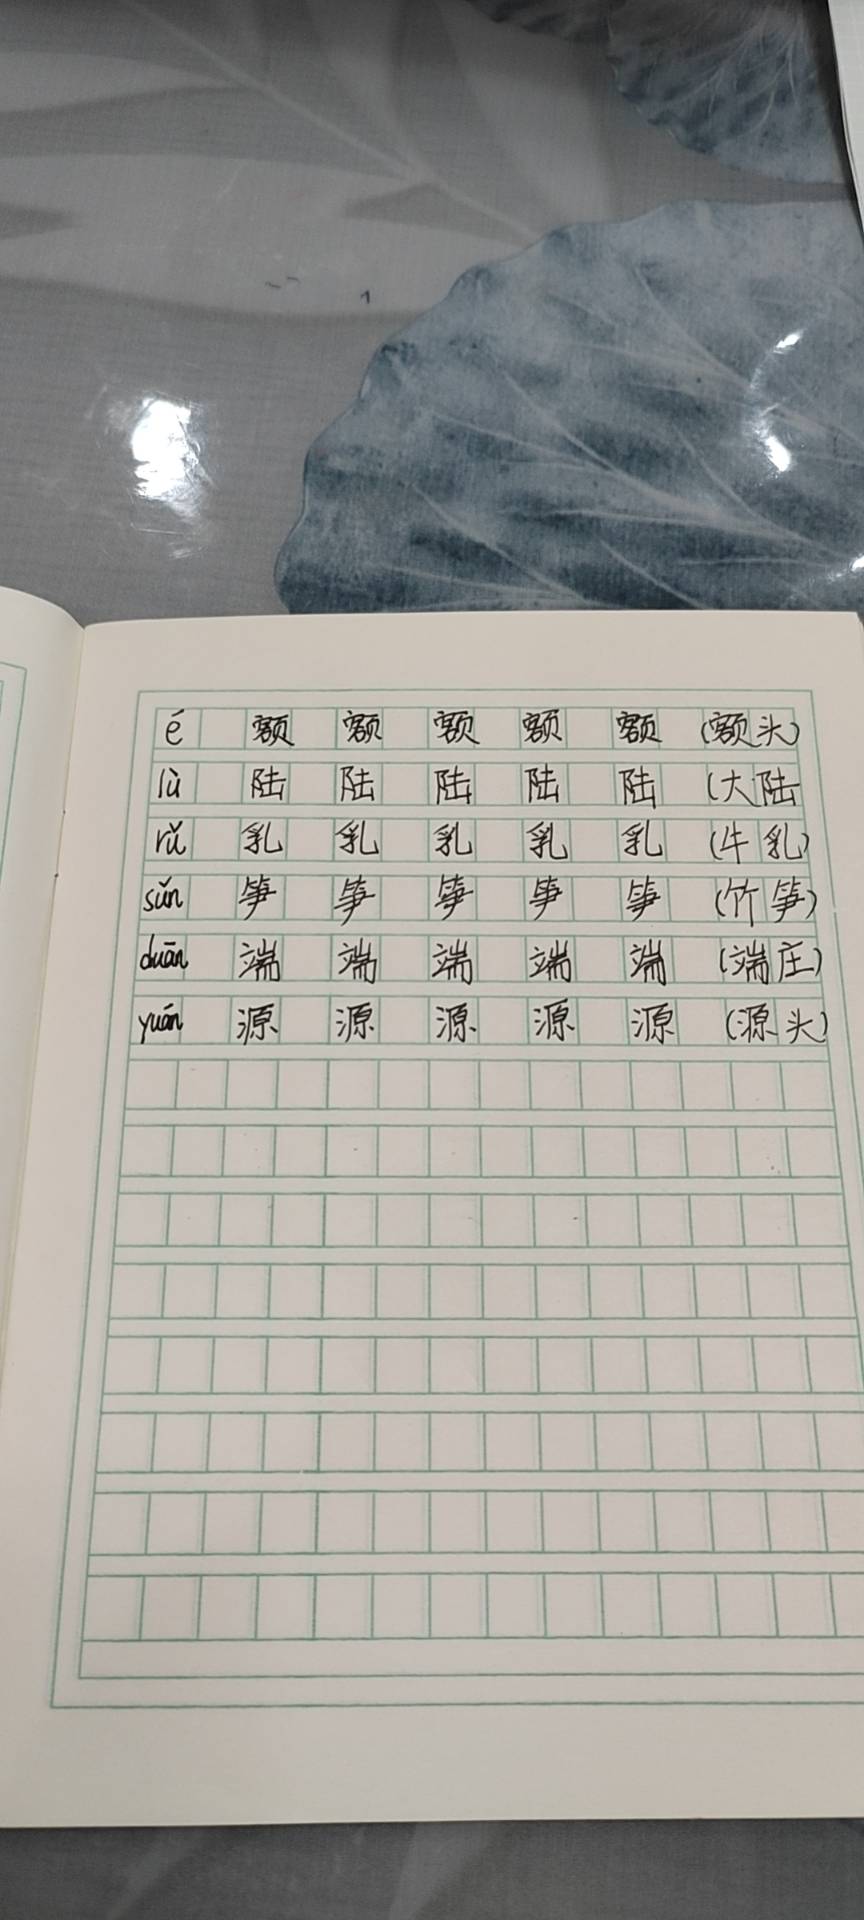 é 额 额 额 额 额 (额头)
lù 陆 陆 陆 陆 陆 (大陆
rǔ 乳 乳 乳 乳 乳 (牛乳)
sǔn 笋 笋 笋 笋 笋 (竹笋)
duān 端 端 端 端 端 (端庄)
yuán 源 源 源 源 源 (源头)